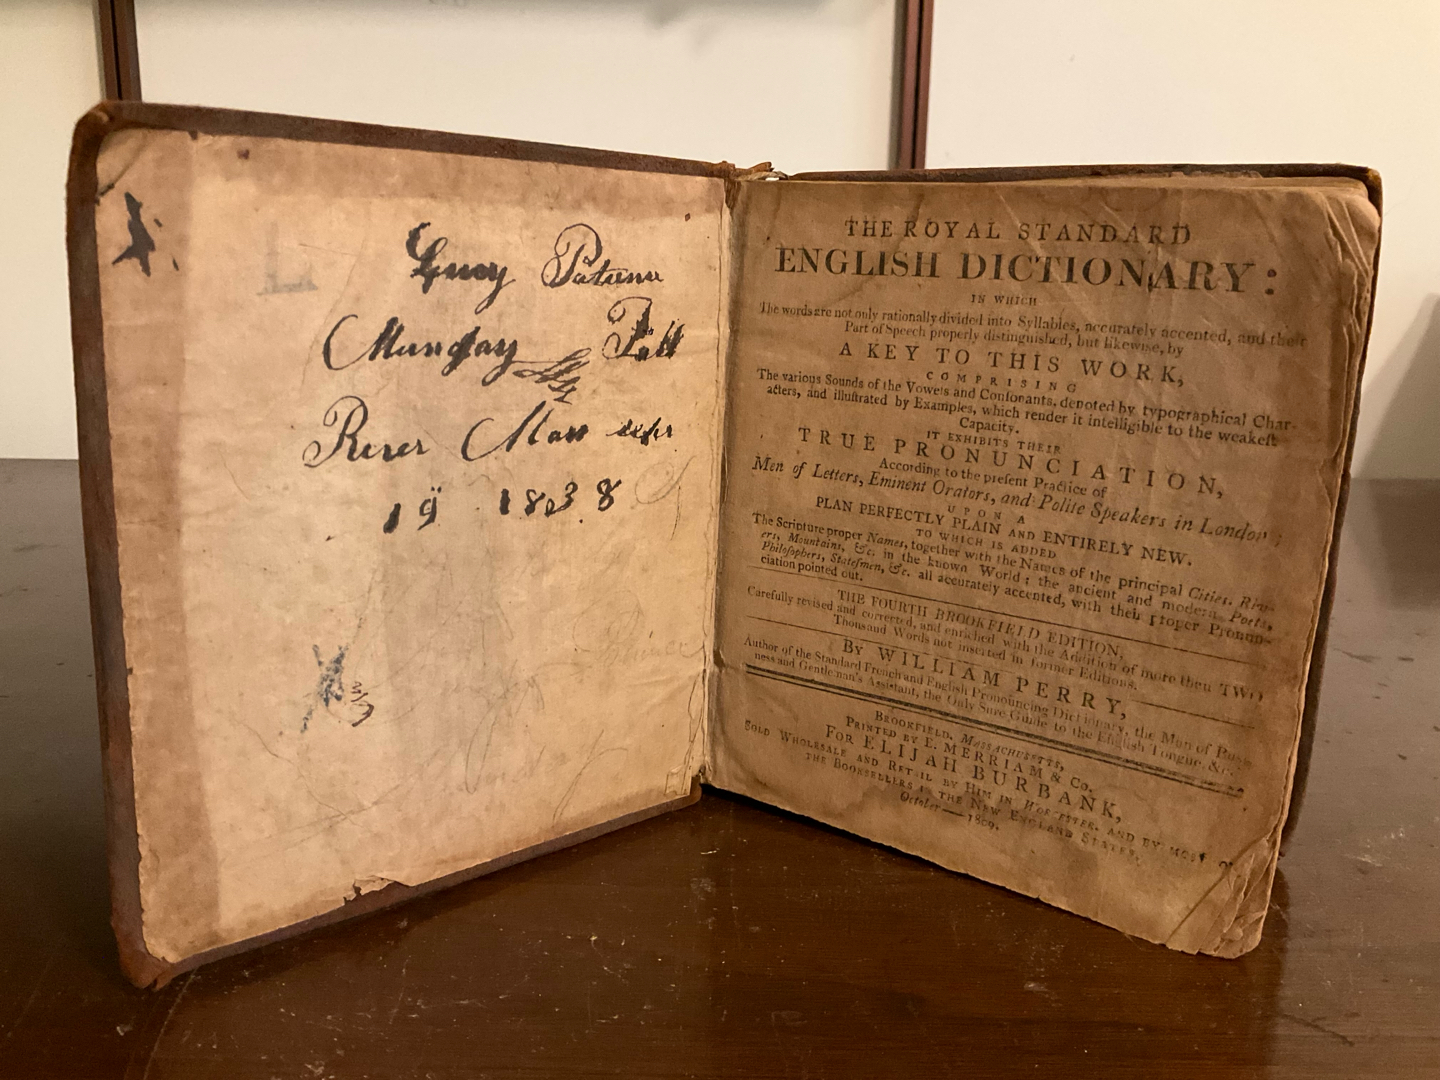 Lucy
Munday Fall
River Mass
19 1838
THE ROYAL STANDARD
ENGLISH DICTIONARY:
IN WHICH
The words are not only rationally divided into Syllables, accurately accented, and their
Part of Speech properly distinguished, but likewise, by
A KEY TO THIS WORK,
COMPRISING
The various Sounds of the Vowels and Conſonants, denoted by typographical Char-
acters, and illuſtrated by Examples, which render it intelligible to the weakeſt
Capacity.
IT EXHIBITS THEIR
TRUE PRONUNCIATION,
According to the preſent Practice of
Men of Letters, Eminent Orators, and Polite Speakers in London;
UPON A
PLAN PERFECTLY PLAIN AND ENTIRELY NEW.
TO WHICH IS ADDED
The Scripture proper Names, together with the Names of the principal Cities, Riv-
ers, Mountains, &c. in the known World: the ancient and modern Poets,
Philoſophers, Stateſmen, &c. all accurately accented, with their proper Pronun-
ciation pointed out.
THE FOURTH BROOKFIELD EDITION,
Carefully revised and corrected, and enriched with the Addition of more then TWO
Thousand Words not inserted in former Editions.
BY WILLIAM PERRY,
Author of the Standard French and English Pronouncing Dictionary, the Man of Busi-
ness and Gentleman's Assistant, the Only Sure Guide to the English Tongue, &c.
BROOKFIELD, MASSACHUSETTS,
PRINTED BY E. MERRIAM & Co.
FOR ELIJAH BURBANK,
SOLD WHOLESALE AND RETAIL BY HIM IN WORCESTER, AND BY MOST OF
THE BOOKSELLERS IN THE NEW ENGLAND STATES,
October—1809.